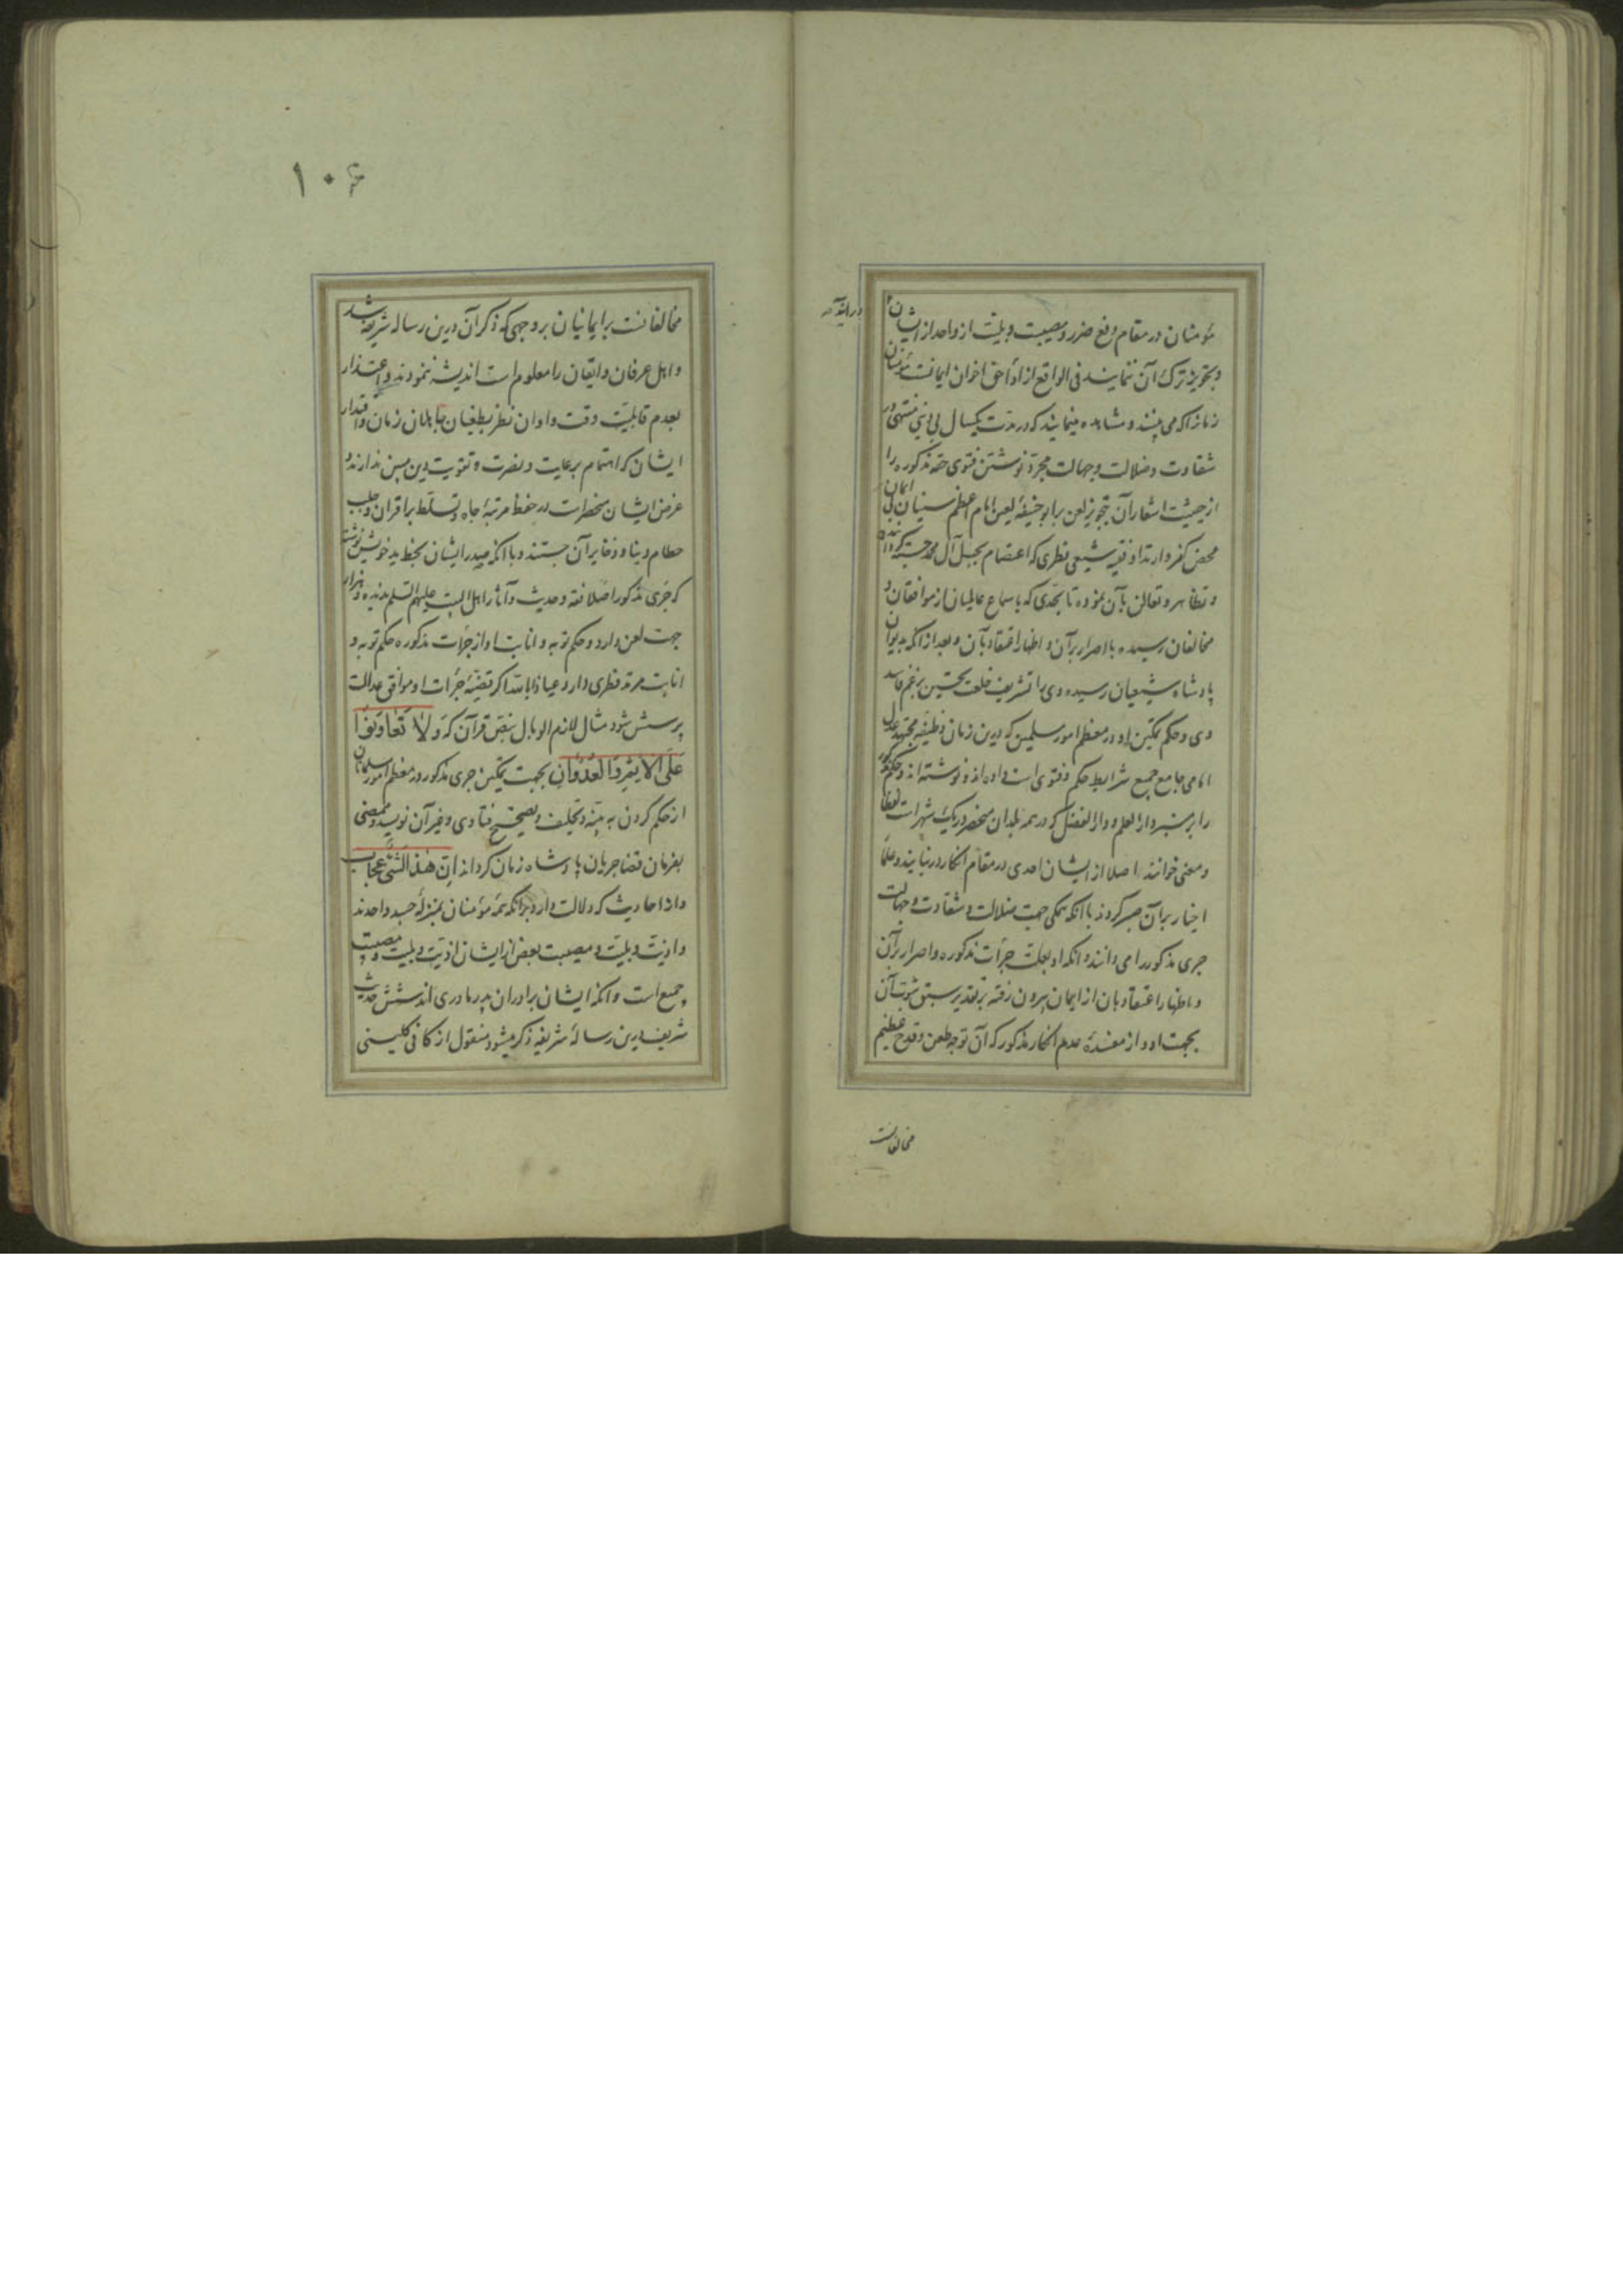 مؤمنان در مقام دفع ضرر و مصیبت و بلیت از واحد از ایشان
در ایند
و تجویز ترک آن ننمایند فی الواقع از اداٴ حق اخوان ایمانست مؤمنان
زمانرا که می بینند و مشاهده مینمایند که در مدت یکسال بی دینی منتهی در
شقاوت و ضلالت و جهالت مجرد نوشتن فتوی حقه مذکوره را
از حیثیت اشعار آن بتجویز لعن بر ابو حنیفهٔ لعین امام اعظم سنیان بی ایمان
محض کفر و ارتداد فقیه شیعی فطری که اعتصام بحبل آل محمد جسته کرده
و تظاهر و تعالن بآن نموده تا بحدی که باسماع عالمیان از موافقان و
مخالفان رسیده با اصرار بر آن و اظهار اعتقاد بآن و بعد از آنکه بدیوان
پادشاه شیعیان رسیده وی را تشریف خلعت تحسین بزعم فاسد
وی و حکم تمکین او در معظم امور مسلمین که درین زمان وظیفهٔ مجتهد عدل
امامی جامع جمیع شرایط حکم و فتوی است داده اند و نوشته اند و حکم مذکور
را بر سر دار العلم و دار الفضل که در همه بلدان منحصر در یک شهر است لفظا
و معنی خوانند اصلا از ایشان احدی در مقام انکار در نیایند و علما
اخیار بر آن صبر کردند با آنکه همکی جهت ضلالت و شقاوت و جهالت
جری مذکور را می دانند و آنکه او بعلت جرأت مذکوره و اصرار بر آن
و اظهار اعتقاد بان از ایمان بیرون رفته بر تقدیر سبق ثبوت آن
بجهت او و از مفسدهٔ عدم انکار مذکور که آن توجه طعن و قدح عظیم
مخالفانست
۱۰۶
مخالفانست بر ایمانیان بر وجهی که ذکر آن درین رساله شریفه شد
و اهل عرفان و ایقان را معلوم است اندیشه ننمودند و اعتذار
بعدم قابلیت وقت و اوان نظر بطغیان جاهلان زمان و اقتدار
ایشان که اهتمام برعایت و نصرت و تقویت دین مبین ندارند و
غرض ایشان منحصر است در حفظ مرتبهٔ جاه و تسلط بر اقران و جلب
حطام دنیا و ذخایر آن جستند و با آنکه صدر ایشان بخط ید خویش نوشته
که جری مذکور اصلا فقه و حدیث و آثار اهل البیت علیهم السلم ندیده و
جهت لعن دارد و حکم توبه و انابت او از جرأت مذکوره حکم توبه و
انابت مرتد فطری دارد عیاذا بالله اکر قضیهٔ جرأت او موافق عدالت
پرسش شود مثال لازم الوبال بنص قرآن که وَلَا تَعَاوَنُوا
عَلَی الاِثْمِ وَالْعُدْوَانِ بجهت تمکین جری مذکور در معظم امور مسلمانان
از حکم کردن به بینه و تحلیف و تصحیح فتاوی و غیر آن نویسد و ممضی
بفرمان قضا جریان پادشاه زمان کرداند اِنَّ هٰذَا لَشَیْءٌ عُجَابٌ
و از احادیث که دلالت دارد برآنکه همه مؤمنان بمنزلهٔ جسد واحدند
و اذیت و بلیت و مصیبت بعض از ایشان اذیت و بلیت و مصیبت
جمیع است و آنکه ایشان برادران پدر مادری اند شش حدیث
شریف درین رسالهٔ شریفه ذکر میشود منقول از کافی کلینی